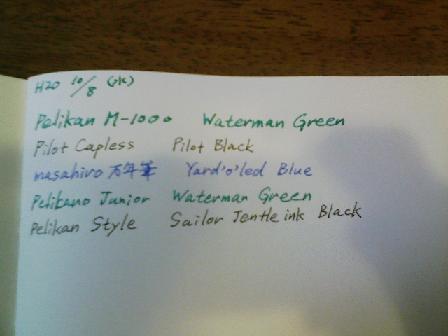 H20 10/8 (水)
Pelikan M-1000 Waterman Green
Pilot Capless Pilot Black
masahiro 万年筆 Yard'o'led Blue
Pelikano Junior Waterman Green
Pelikan Style Sailor Jentle ink Black